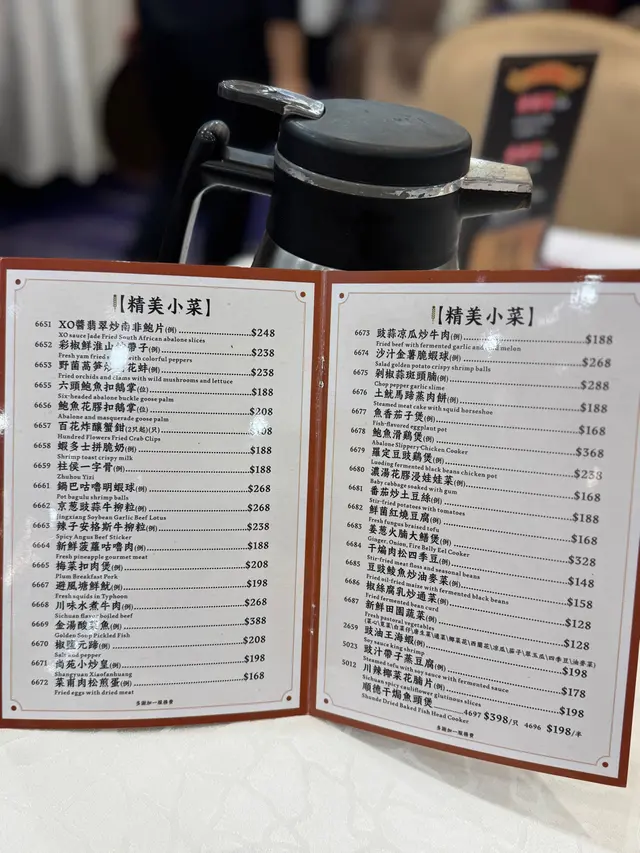 【精美小菜】
6651 XO醬翡翠炒南非鮑片(例) $248
XO sauce Jade Fried South African abalone slices
6652 彩椒鮮淮山 帶子(例) $238
Fresh yam fried with colorful peppers
6653 野菌萵笋炒 花蚌(例) $238
Fried orchids and clams with wild mushrooms and lettuce
6655 六頭鮑魚扣鵝掌(位) $188
Six-headed abalone buckle goose palm
6656 鮑魚花膠扣鵝掌(位) $208
Abalone and masquerade goose palm
6657 百花炸釀蟹鉗(2只起)(只)
Hundred Flowers Fried Crab Clips
6658 蝦多士拼脆奶(例) $188
Shrimp toast crispy milk
6659 柱侯一字骨(例) $188
Zhuhou Yizi
6661 鍋巴咕嚕明蝦球(例) $268
Pot bagulu shrimp balls
6662 京葱豉蒜牛柳粒(例) $268
Jingxiang Soybean Garlic Beef Lotus
6663 辣子安格斯牛柳粒(例) $238
Spicy Angus Beef Sticker
6664 新鮮菠蘿咕嚕肉(例) $188
Fresh pineapple gourmet meat
6665 梅菜扣肉煲(例) $208
Plum Breakfast Pork
6667 避風塘鮮魷(例) $198
Fresh squids in Typhoon
6668 川味水煮牛肉(例) $268
Sichuan flavor boiled beef
6669 金湯酸菜魚(例) $388
Golden Soup Pickled Fish
6670 椒鹽元蹄(例) $208
Salt and pepper
6671 尚苑小炒皇(例) $198
Shangyuan Xiaofanhuang
6672 菜甫肉松煎蛋(例) $168
Fried eggs with dried meat
多謝加一服務費
【精美小菜】
6673 豉蒜凉瓜炒牛肉(例) $188
Fried beef with fermented garlic and melon
6674 沙汁金薯脆蝦球(例) $268
Salad golden potato crispy shrimp balls
6675 剁椒蒜斑頭腩(例) $288
Chop pepper garlic slime
6676 土魷馬蹄蒸肉餅(例) $188
Steamed meat cake with squid horseshoe
6677 魚香茄子煲(例) $168
Fish-flavored eggplant pot
6678 鮑魚滑鷄煲(例) $368
Abalone Slippery Chicken Cooker
6679 羅定豆豉鷄煲(例) $238
Loading fermented black beans chicken pot
6680 濃湯花膠浸娃娃菜(例) $168
Baby cabbage soaked with gum
6681 番茄炒土豆絲(例) $188
Stir-fried potatoes with tomatoes
6682 鮮菌紅燒豆腐(例) $168
Fresh fungus braised tofu
6683 姜葱火腩大鱔煲(例) $328
Ginger, Onion, Fire Belly Eel Cooker
6684 干煸肉松四季豆(例) $148
Stir-fried meat floss and seasonal beans
6685 豆豉鯪魚炒油麥菜(例) $158
Fried oil-fried maize with fermented black beans
6686 椒絲腐乳炒通菜(例) $128
Fried fermented bean curd
6687 新鮮田園蔬菜(例) $128
Fresh pastoral vegetables
2659 豉油王海蝦(例) $178
Soy sauce king shrimp
5023 豉汁帶子蒸豆腐(例) $178
Steamed tofu with soy sauce with fermented sauce
5012 川辣椰菜花腩片(例) $198
Sichuan spicy cauliflower glutinous slices
順德干焗魚頭煲 4697 $398/只 4696 $198/半
Shunde Dried Baked Fish Head Cooker
多謝加一服務費